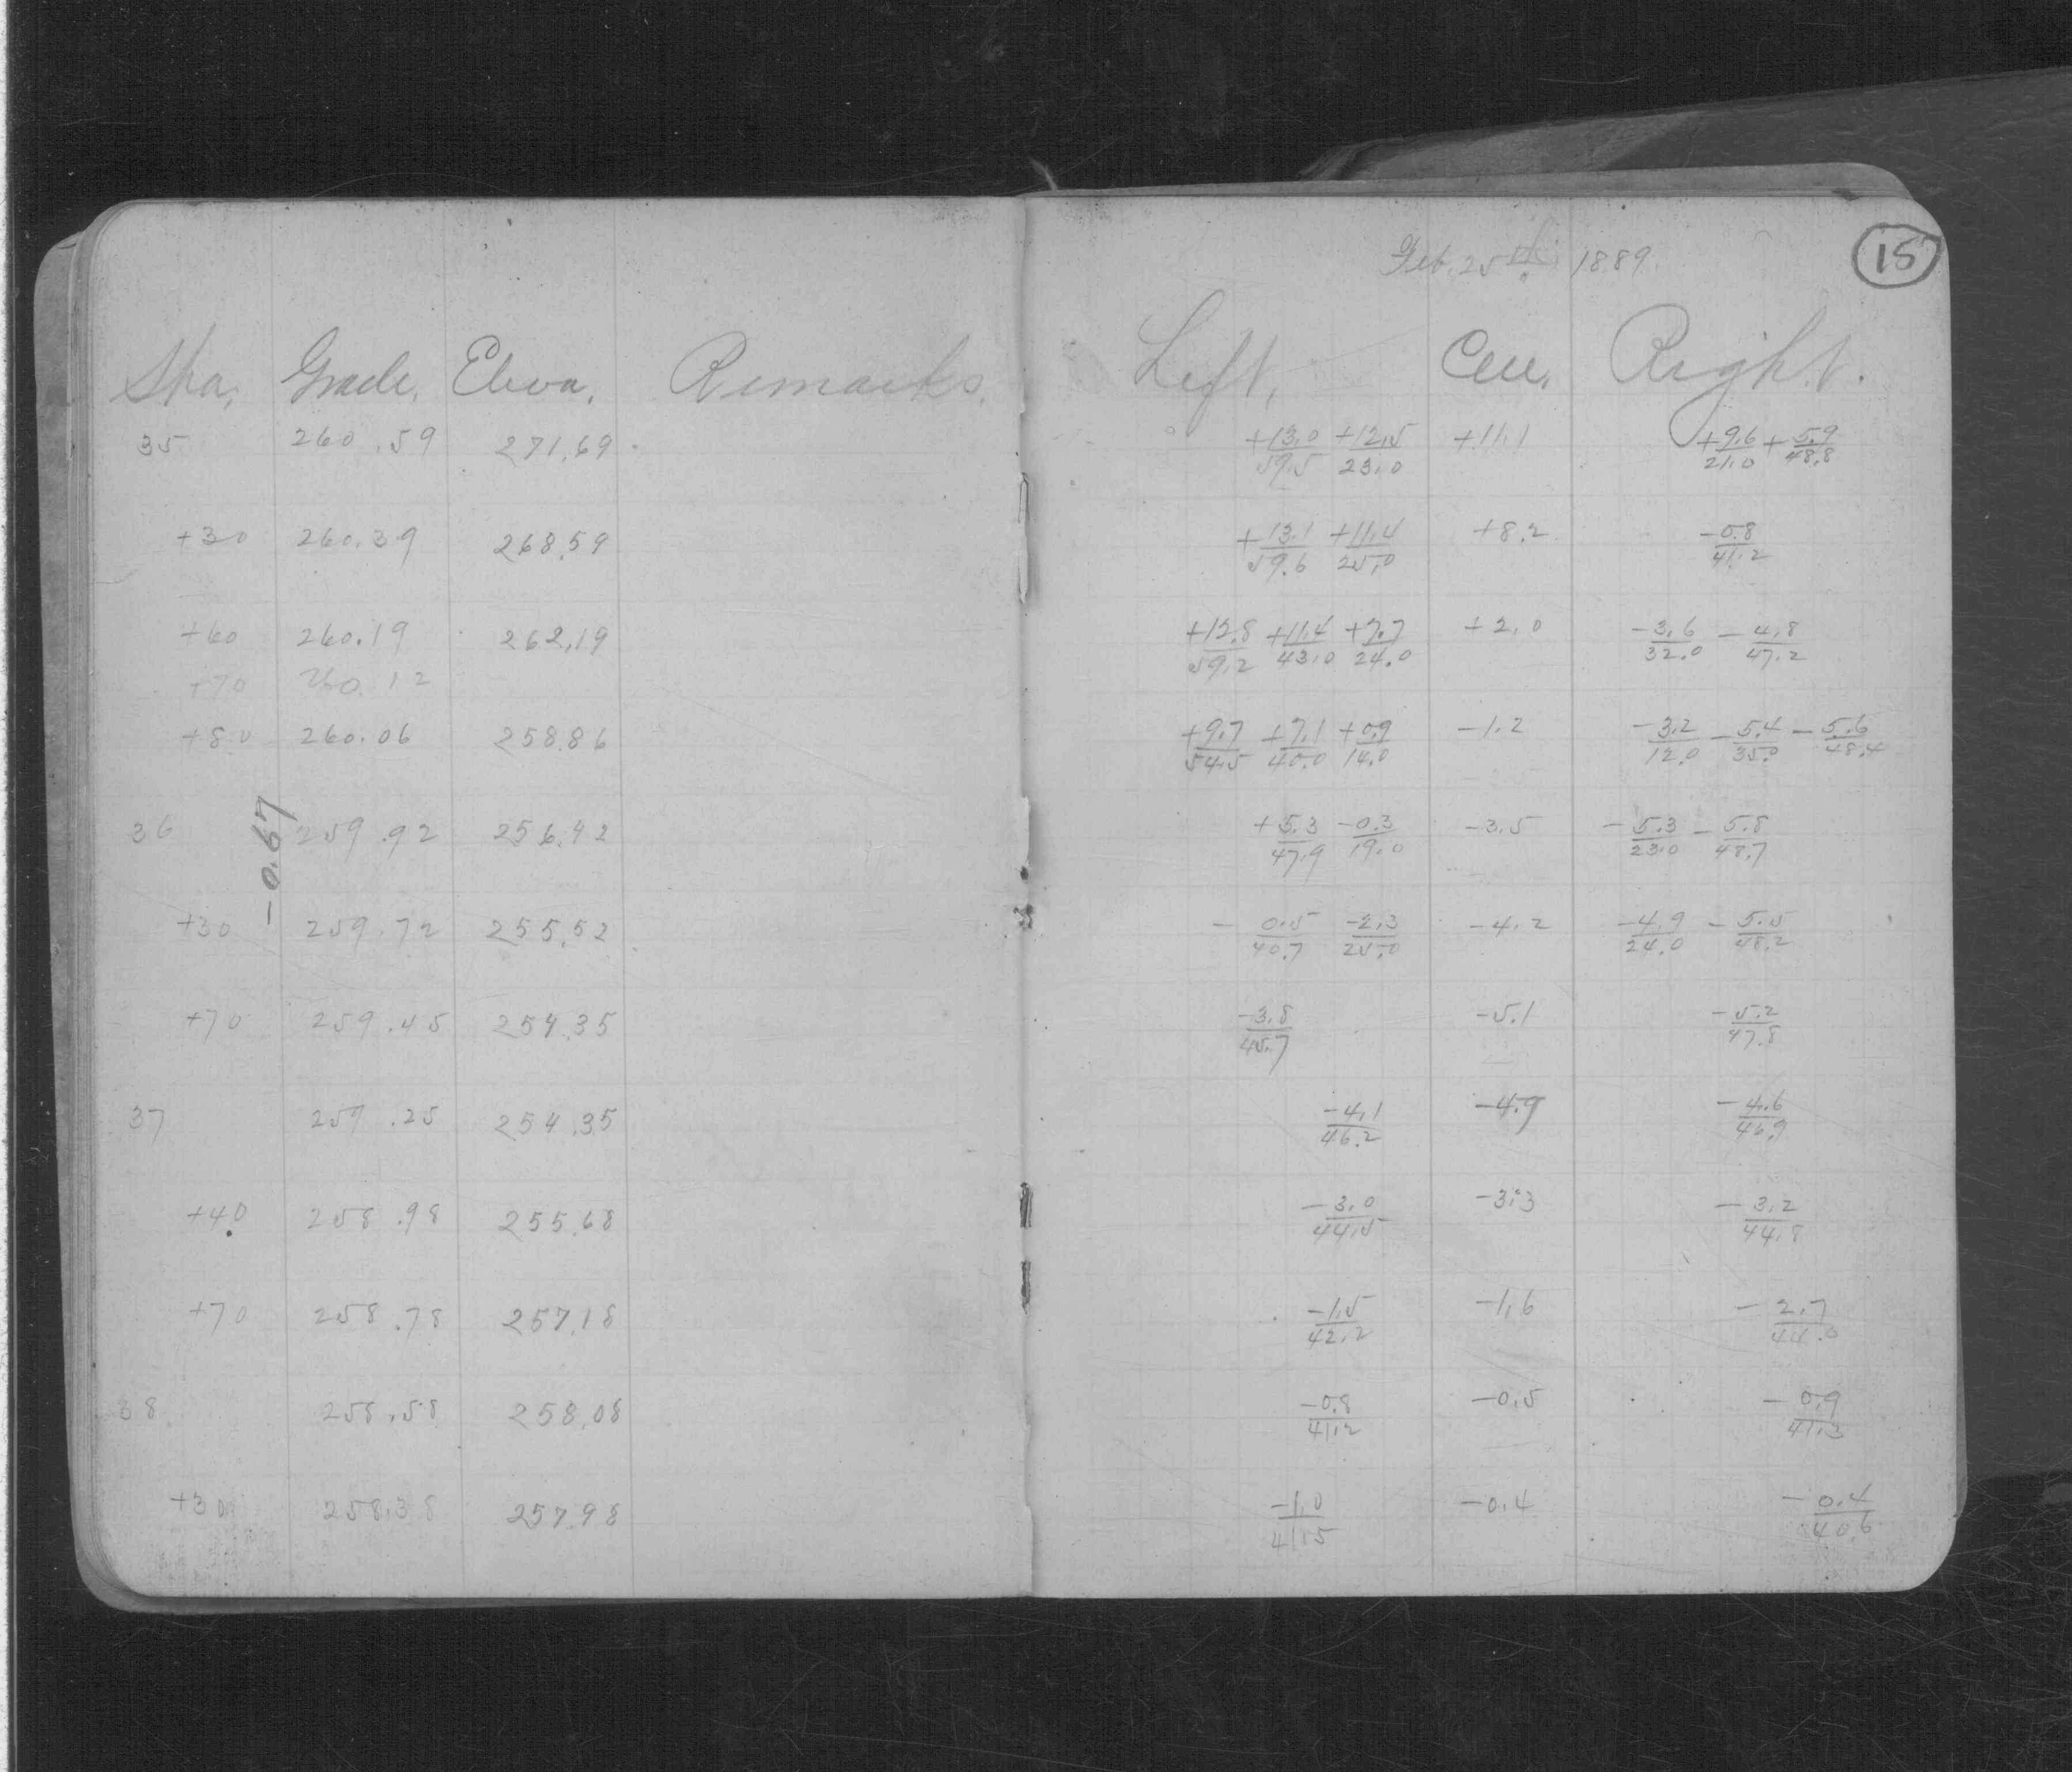 Feb. 25th 1889.
15
Sta. Grade. Eleva. Remarks. Left. Cen. Right.
35 260.59 271.69 +13.0/59.5 +12.5/23.0 +11.1 +9.6/21.0 +5.9/48.8
+30 260.39 268.59 +13.1/59.6 +11.4/25.0 +8.2 -0.8/41.2
+60 260.19 262.19 +12.8/59.2 +11.4/43.0 +7.7/24.0 +2.0 -3.6/32.0 -4.8/47.2
+70 260.12
+80 260.06 258.86 +9.7/54.5 +7.1/40.0 +0.9/14.0 -1.2 -3.2/12.0 -5.4/35.0 -5.6/48.4
-0.67
36 259.92 256.42 +5.3/47.9 -0.3/19.0 -3.5 -5.3/23.0 -5.8/48.7
+30 259.72 255.52 -0.5/40.7 -2.3/25.0 -4.2 -4.9/24.0 -5.5/48.2
+70 259.45 254.35 -3.8/45.7 -5.1 -5.2/47.8
37 259.25 254.35 -4.1/46.2 -4.9 -4.6/46.9
+40 258.98 255.68 -3.0/44.5 -3.3 -3.2/44.8
+70 258.78 257.18 -1.5/42.2 -1.6 -2.7/44.0
38 258.58 258.08 -0.8/41.2 -0.5 -0.9/41.3
+30 258.38 257.98 -1.0/41.5 -0.4 -0.4/40.6